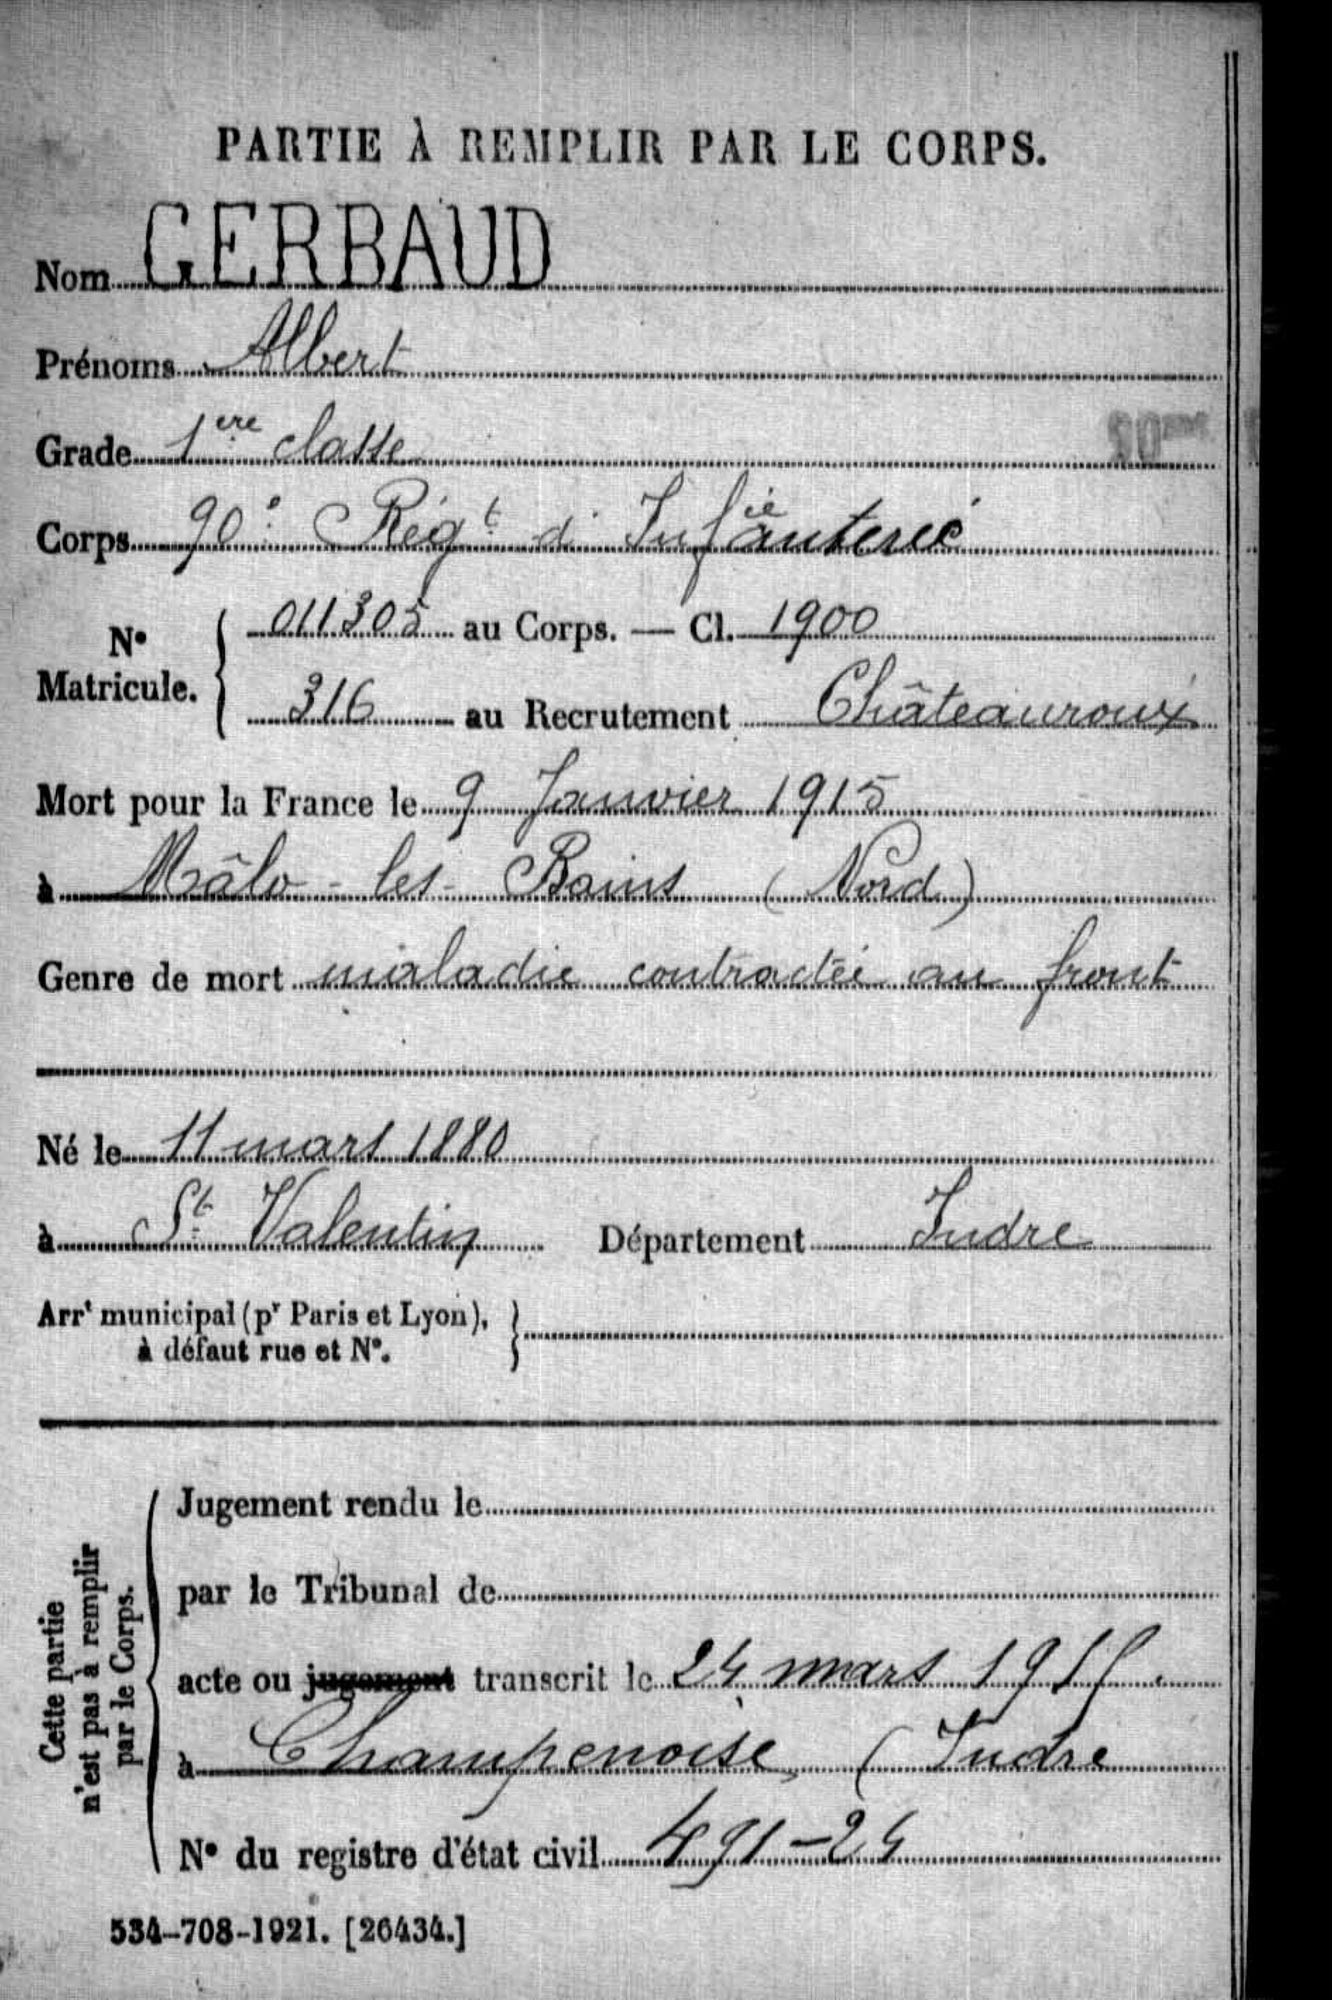 PARTIE À REMPLIR PAR LE CORPS.
Nom GERBAUD
Prénoms Albert
Grade 1ère classe
Corps 90e Régt d'Infanterie
011305 au Corps. — Cl. 1900
N° Matricule.
316 au Recrutement Châteauroux
Mort pour la France le 9 Janvier 1915
à Mâlo-les-Bains (Nord)
Genre de mort maladie contractée au front
Né le 11 mars 1880
à St Valentin Département Indre
Arrt municipal (pr Paris et Lyon),
à défaut rue et N°.
Cette partie
n'est pas à remplir
par le Corps.
Jugement rendu le
par le Tribunal de
acte ou jugement transcrit le 24 mars 1915.
à Champenoise (Indre
N° du registre d'état civil 491-24
534-708-1921. [26434.]